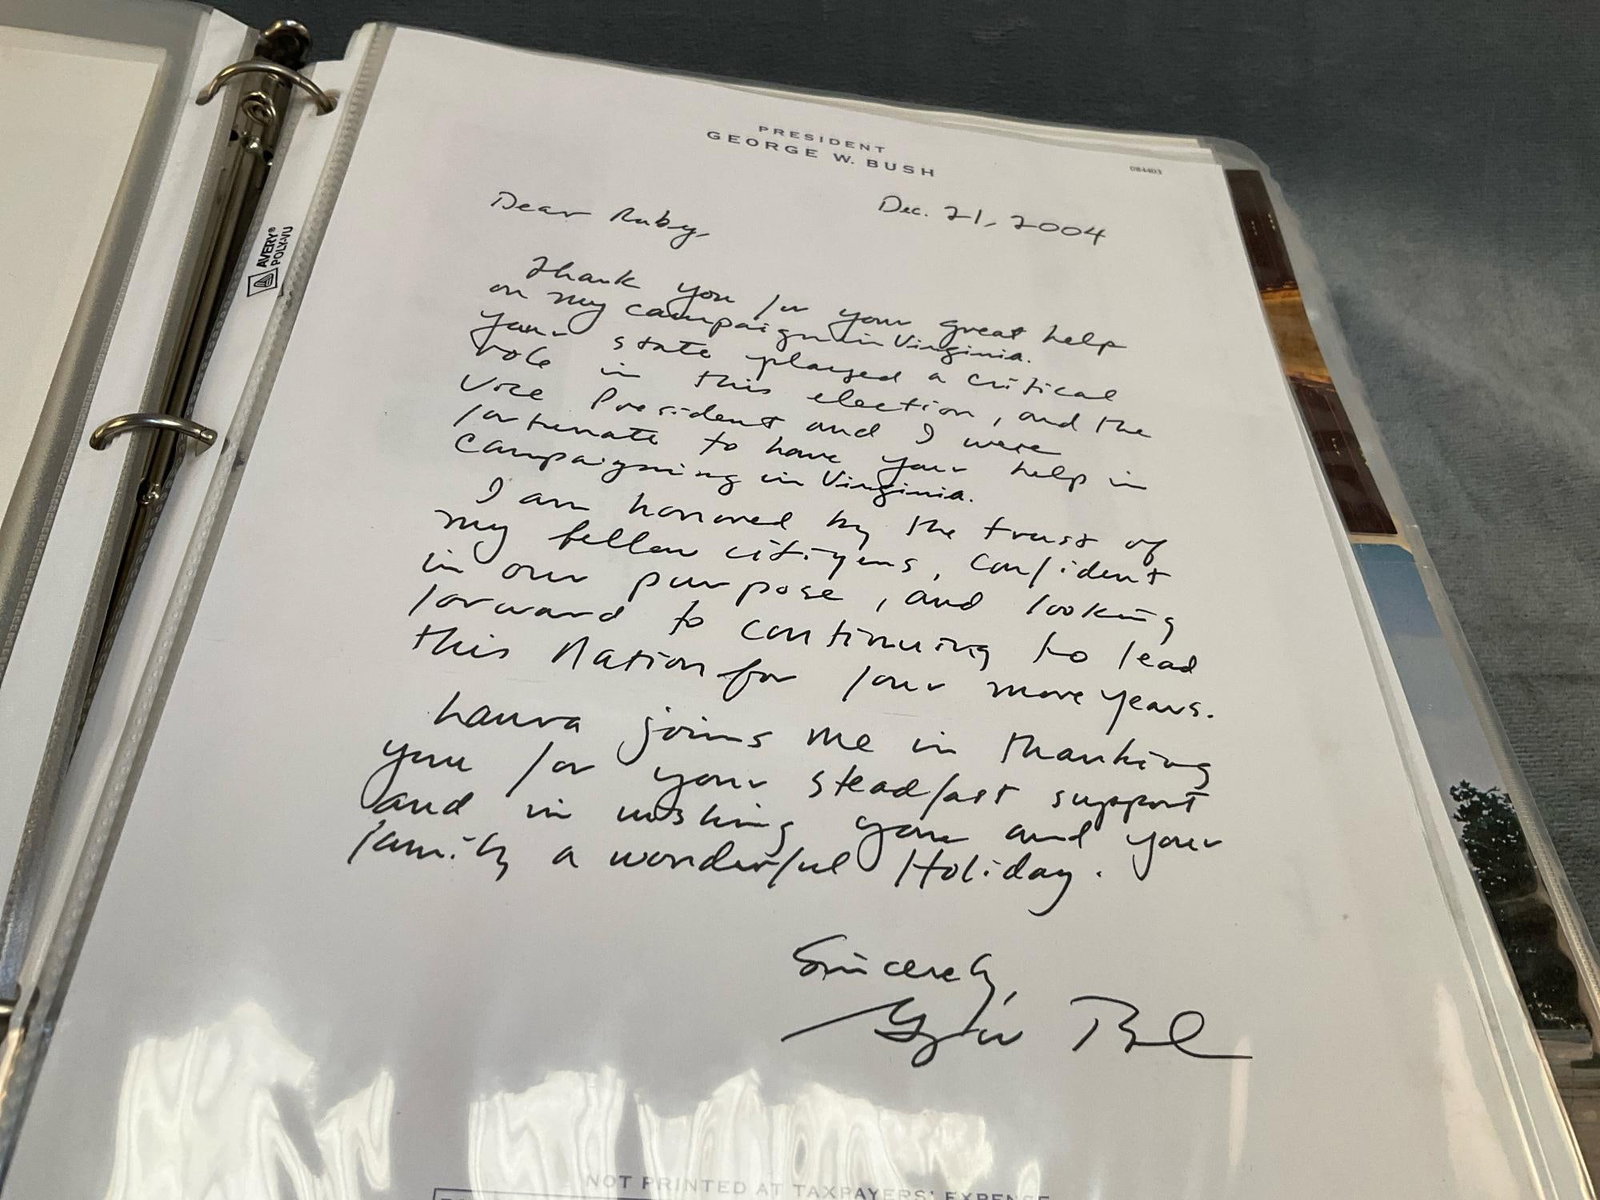 PRESIDENT
GEORGE W. BUSH
084403
Dec. 21, 2004
Dear Ruby,
Thank you for your great help
on my campaign in Virginia.
Your state played a critical
role in this election, and the
Vice President and I were
fortunate to have your help in
campaigning in Virginia.
I am honored by the trust of
my fellow citizens, confident
in our purpose, and looking
forward to continuing to lead
this Nation for four more years.
Laura joins me in thanking
you for your steadfast support
and in wishing you and your
family a wonderful Holiday.
Sincerely,
NOT PRINTED AT TAXPAYERS' EXPENSE
AVERY®
POLY-VU